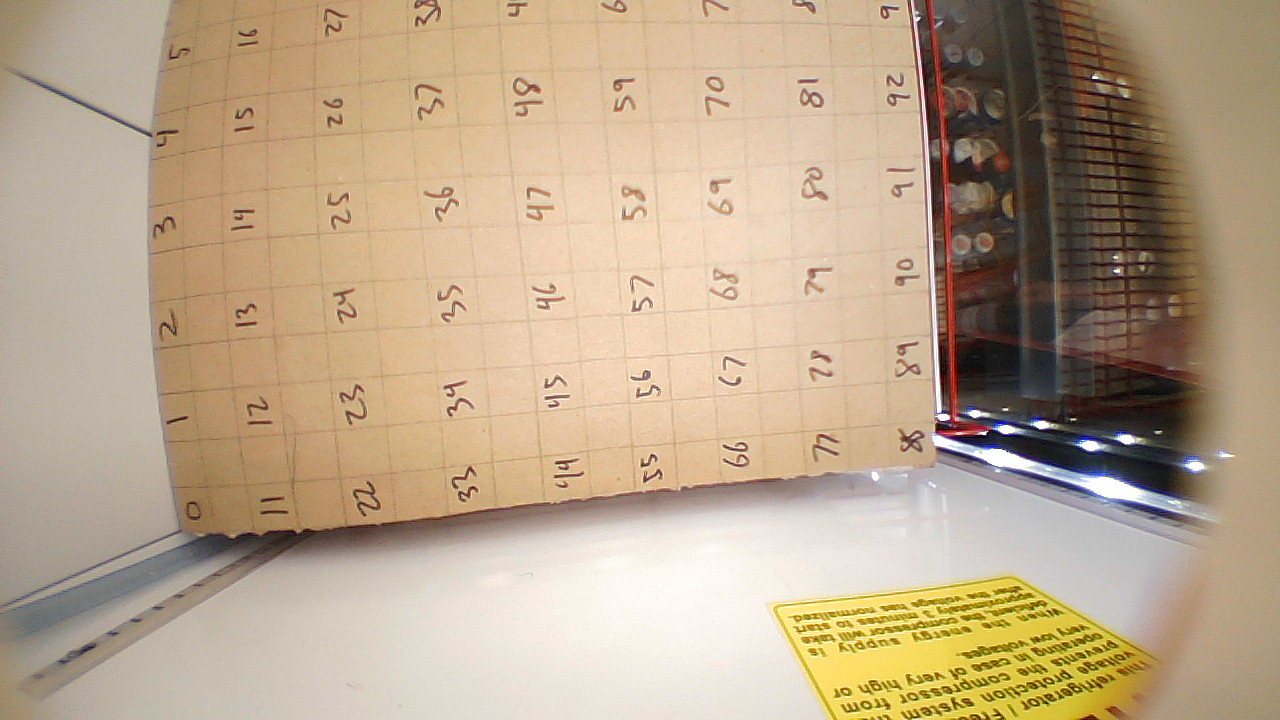 0 1 2 3 4 5
11 12 13 14 15 16
22 23 24 25 26 27
33 34 35 36 37 38
44 45 46 47 48
55 56 57 58 59
66 67 68 69 70
77 78 79 80 81
88 89 90 91 92
This refrigerator /
voltage protection system
prevents the compressor from
operating in the case of very high or
very low voltages.
When the energy supply is
deficient, the compressor will take
approximately 3 minutes to start
after the voltage has normalized.